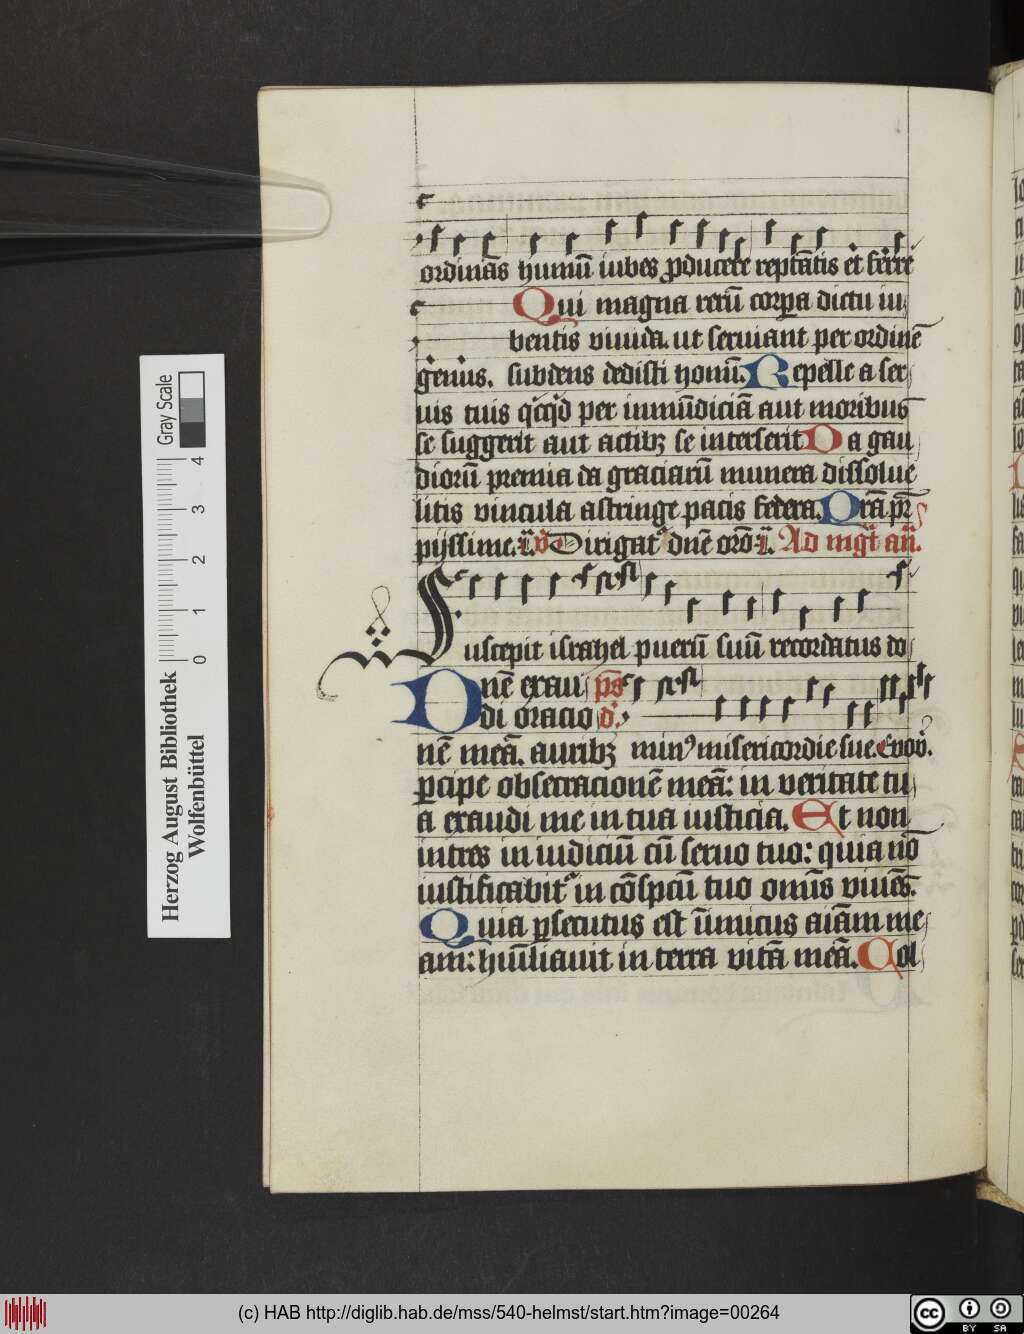 ordinās humū iubes ꝓducere reptātis et ferre
Qui magna rerū corꝑa dictu iu
bentis viuida. ut seruiant per ordinē
genus. subdens dedisti homī. Repelle a ser
uis tuis qͥcqͥd per inmūdiciā aut moribus
se suggerit aut actibꝫ se interserit Da gau
diorū premia da graciarū munera dissolue
litis vincula astringe pacis federa. Orā pr̄
pijssime. Dirigat᷑ dnē orō Ad mgt an̄.
Suscepit israhel puerū suū recordatus do
Dnē exau ps̄
di oracio d.
nē meā. auribꝫ minꝰ misericordie sue. evov̄.
ꝑcipe obsecracionē meā: in veritate tu
a exaudi me in tua iusticia. Et non
intres in iudiciū cū seruo tuo: quia nō
iustificabit᷑ in cōspcū tuo omīs viuēs.
Quia ꝑsecutus est īnimicus aīam me
am: hūiliauit in terra vitā meā. Col
Herzog August Bibliothek
Wolfenbüttel
Gray Scale
0 1 2 3 4
(c) HAB http://diglib.hab.de/mss/540-helmst/start.htm?image=00264
cc BY SA